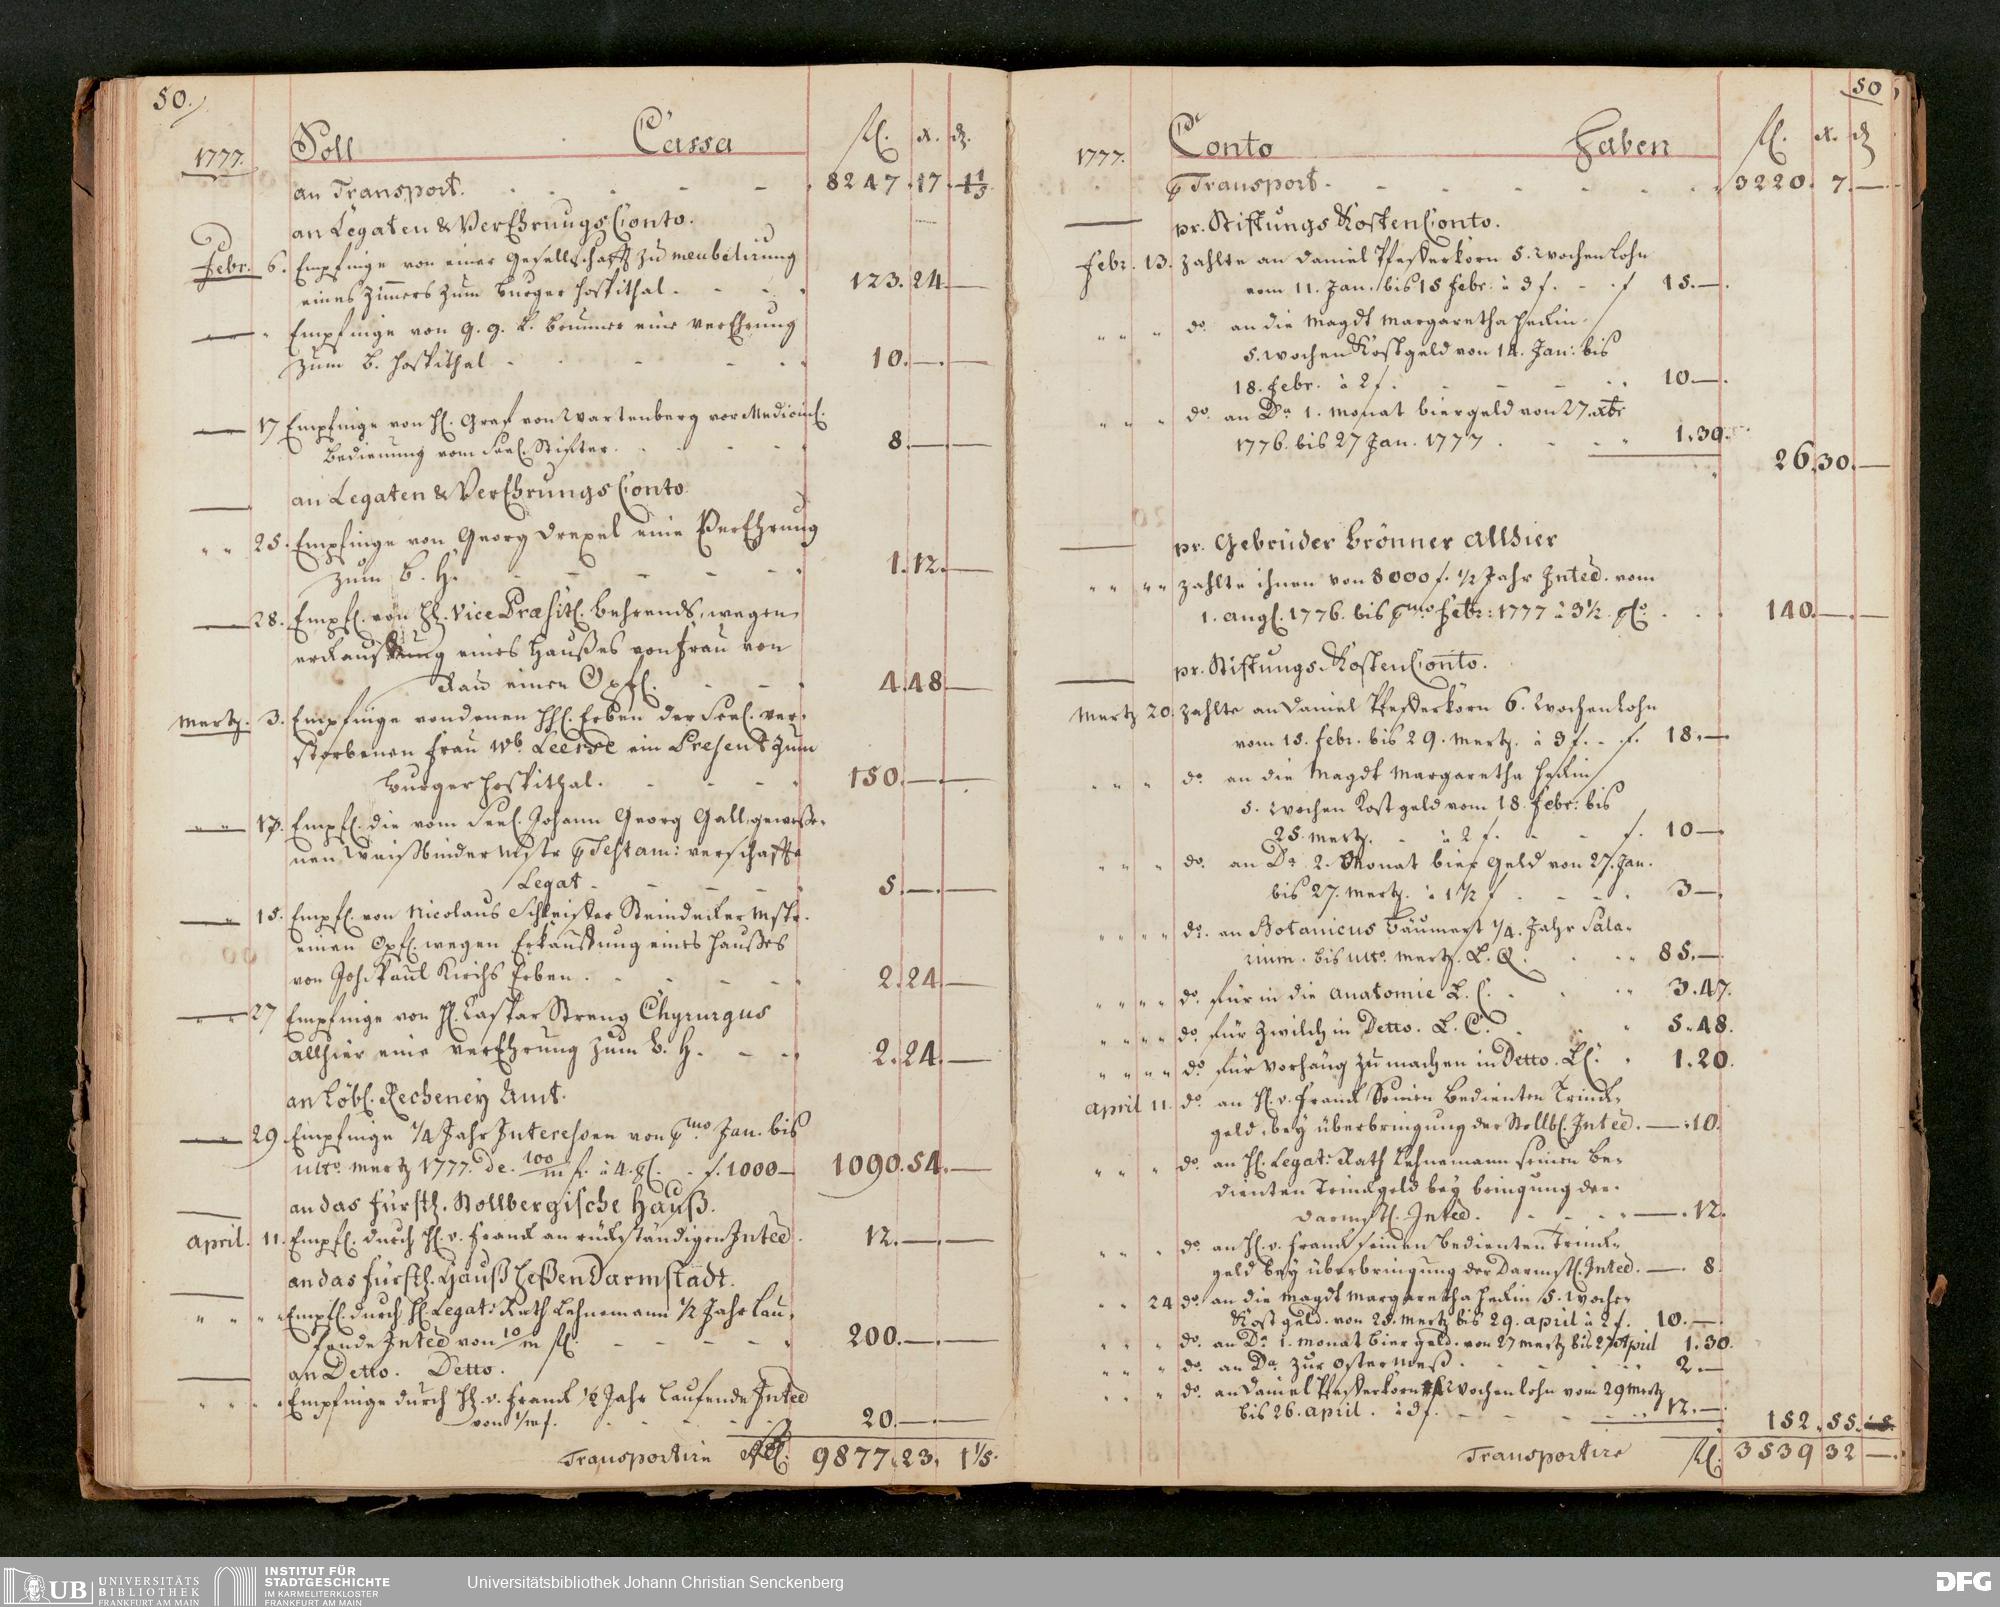 50.
1777. Soll Cassa fl. x. d.
an Transport. 8247. 17. 1 1/5
an Legaten & VerEhrungs Conto.
Febr. 6. Empfinge von einer Gesellschafft zu meubelirung
eines Zimers zum burger hospithal. 123. 24. —
Empfinge von G. G. L. Brunner eine verEhrung
zum b. hospithal 10. — —
17 Empfinge von H. Graf von Wartenberg vor Medicinl.
bedienung vom Seel. Stifter. 8. — —
an Legaten & VerEhrungs Conto.
25. Empfinge von Georg Drexel eine VerEhrung
zum b. H. 1. 12. —
28. Empfl. von H. Vice Præsitl. Behrends, wegen
erkauffung eines Haußes von Frau von
Kau einen Opfl. 4. 48 —
Mertz. 3. Empfinge von denen HHl. Erben der Seel. ver-
storbenen Frau Wb. Leerse ein Present zum
burger hospithal. 150. — —
13. Empfl. die vom Seel. Johann Georg Gall, geweße-
nen Weißbinder Mstr p Testam: verschaffte
Legat 5. — —
15. Empfl. von Nicolaus Schleiffer Steindecker Mstr.
einen Opfl. wegen Erkauffung eines Haußes
von Joh. Paul Kirchs Erben. 2. 24. —
27 Empfinge von H. Caspar Streng Chyrurgus
allhier eine verEhrung zum b. H. 2. 24. —
an Löbl. Recheney Amt.
29 Empfinge 1/4 Jahr Interessen von pmo Jan. bis
ulto. Mertz 1777. de. 100/m f. à 4. pC. f. 1000— 1090. 54. —
an das Fürstl. Stollbergische Hauß.
April. 11. Empfl. durch H. v. Franck an rückständigen Inted. 12. — —
an das Fürstl. Hauß Heßen Darmstadt.
Empfl. durch H. Legat: Rath Lehnemann 1/2 Jahr lau-
fende Inted von 10/m fl. 200. — —
an Detto. Detto.
Empfinge durch H. v. Franck 1/2 Jahr laufende Inted
von 1/m f. 20. — —
Transportire fl. 9877. 23. 1 1/5.
50
1777. Conto Haben fl. x. d
p Transport. 3220. 7. —
pr. Stiftungs Kosten Conto.
Febr. 13. zahlte an Daniel Pfefferkorn 5. Wochen Lohn
vom 11. Jan. bis 15 Febr. à 3 f. f 15. —.
do. an die Magdt Margaretha Heckin
5. Wochen Kostgeld von 14. Jan: bis
18. Febr. à 2 f. 10. —.
do. an Da. 1. Monat biergeld von 27. xbr
1776. bis 27 Jan. 1777. 1. 30.
26. 30. —
pr. Gebrüder Brönner allhier
zahlte ihnen von 8000 f. 1/2 Jahr Inted. vom
1. Augl. 1776. bis pmo Febr: 1777 à 3 1/2 pCo. 140. — —
pr. Stiftungs Kosten Conto.
Mertz 20. zahlte an Daniel Pfefferkorn 6. Wochen lohn
vom 15. Febr. bis 29. Mertz. à 3 f. f. 18. —
do. an die Magdt Margaretha Heckin
5. Wochen Kostgeld vom 18. Febr: bis
25. Mertz. à 2 f. f. 10 —
do. an Da 2. Monat bier Geld von 27. Jan.
bis 27. Mertz. à 1 1/2 f 3 —.
do. an Botanicus Bäumert 1/4. Jahr Sala-
rium. bis ulto. Mertz. L. Q. 85. —
do. für in die Anatomie L. C. 3. 47.
do. für Zwilch in Detto. L. C. 5. 48.
do. für Vorhäng zu machen in Detto. L C. 1. 20.
April 11. do. an H. v. Franck Seinen Bedienten Trinck-
geld, bey überbringung der Stollb. Inted. — 10.
do. an H. Legat: Rath Lehnemann seinen Be-
dienten Trinckgeld bey bringung der
Darmstl. Inted. — 12.
do. an H. v. Franck seinen bedienten Trinck-
geld bey überbringung der Darmstl. Inted. — 8
24 do. an die Magdt Margaretha Heckin 5. Woche-
Kostgeld. von 25. Mertz bis 29. April à 2 f. 10. —.
do. an Da 1. Monat bier geld. von 27 Mertz bis 27 April 1. 30.
do. an Da. zur Ostermeß. 2. —
do. an Daniel Pfefferkorn Wochen lohn vom 29 Mertz
bis 26. April. à 3 f. 12. —.
152. 55.
Transportire fl. 3539 32 —.
UB UNIVERSITÄTS
BIBLIOTHEK
FRANKFURT AM MAIN
INSTITUT FÜR
STADTGESCHICHTE
IM KARMELITERKLOSTER
FRANKFURT AM MAIN
Universitätsbibliothek Johann Christian Senckenberg
DFG